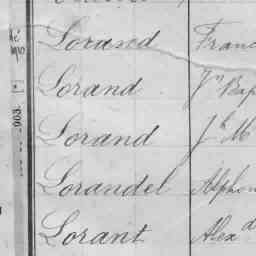 Lorand Franc
Lorand Jn Bap
Lorand Jh M
Lorandel Alphon
Lorant Alexd